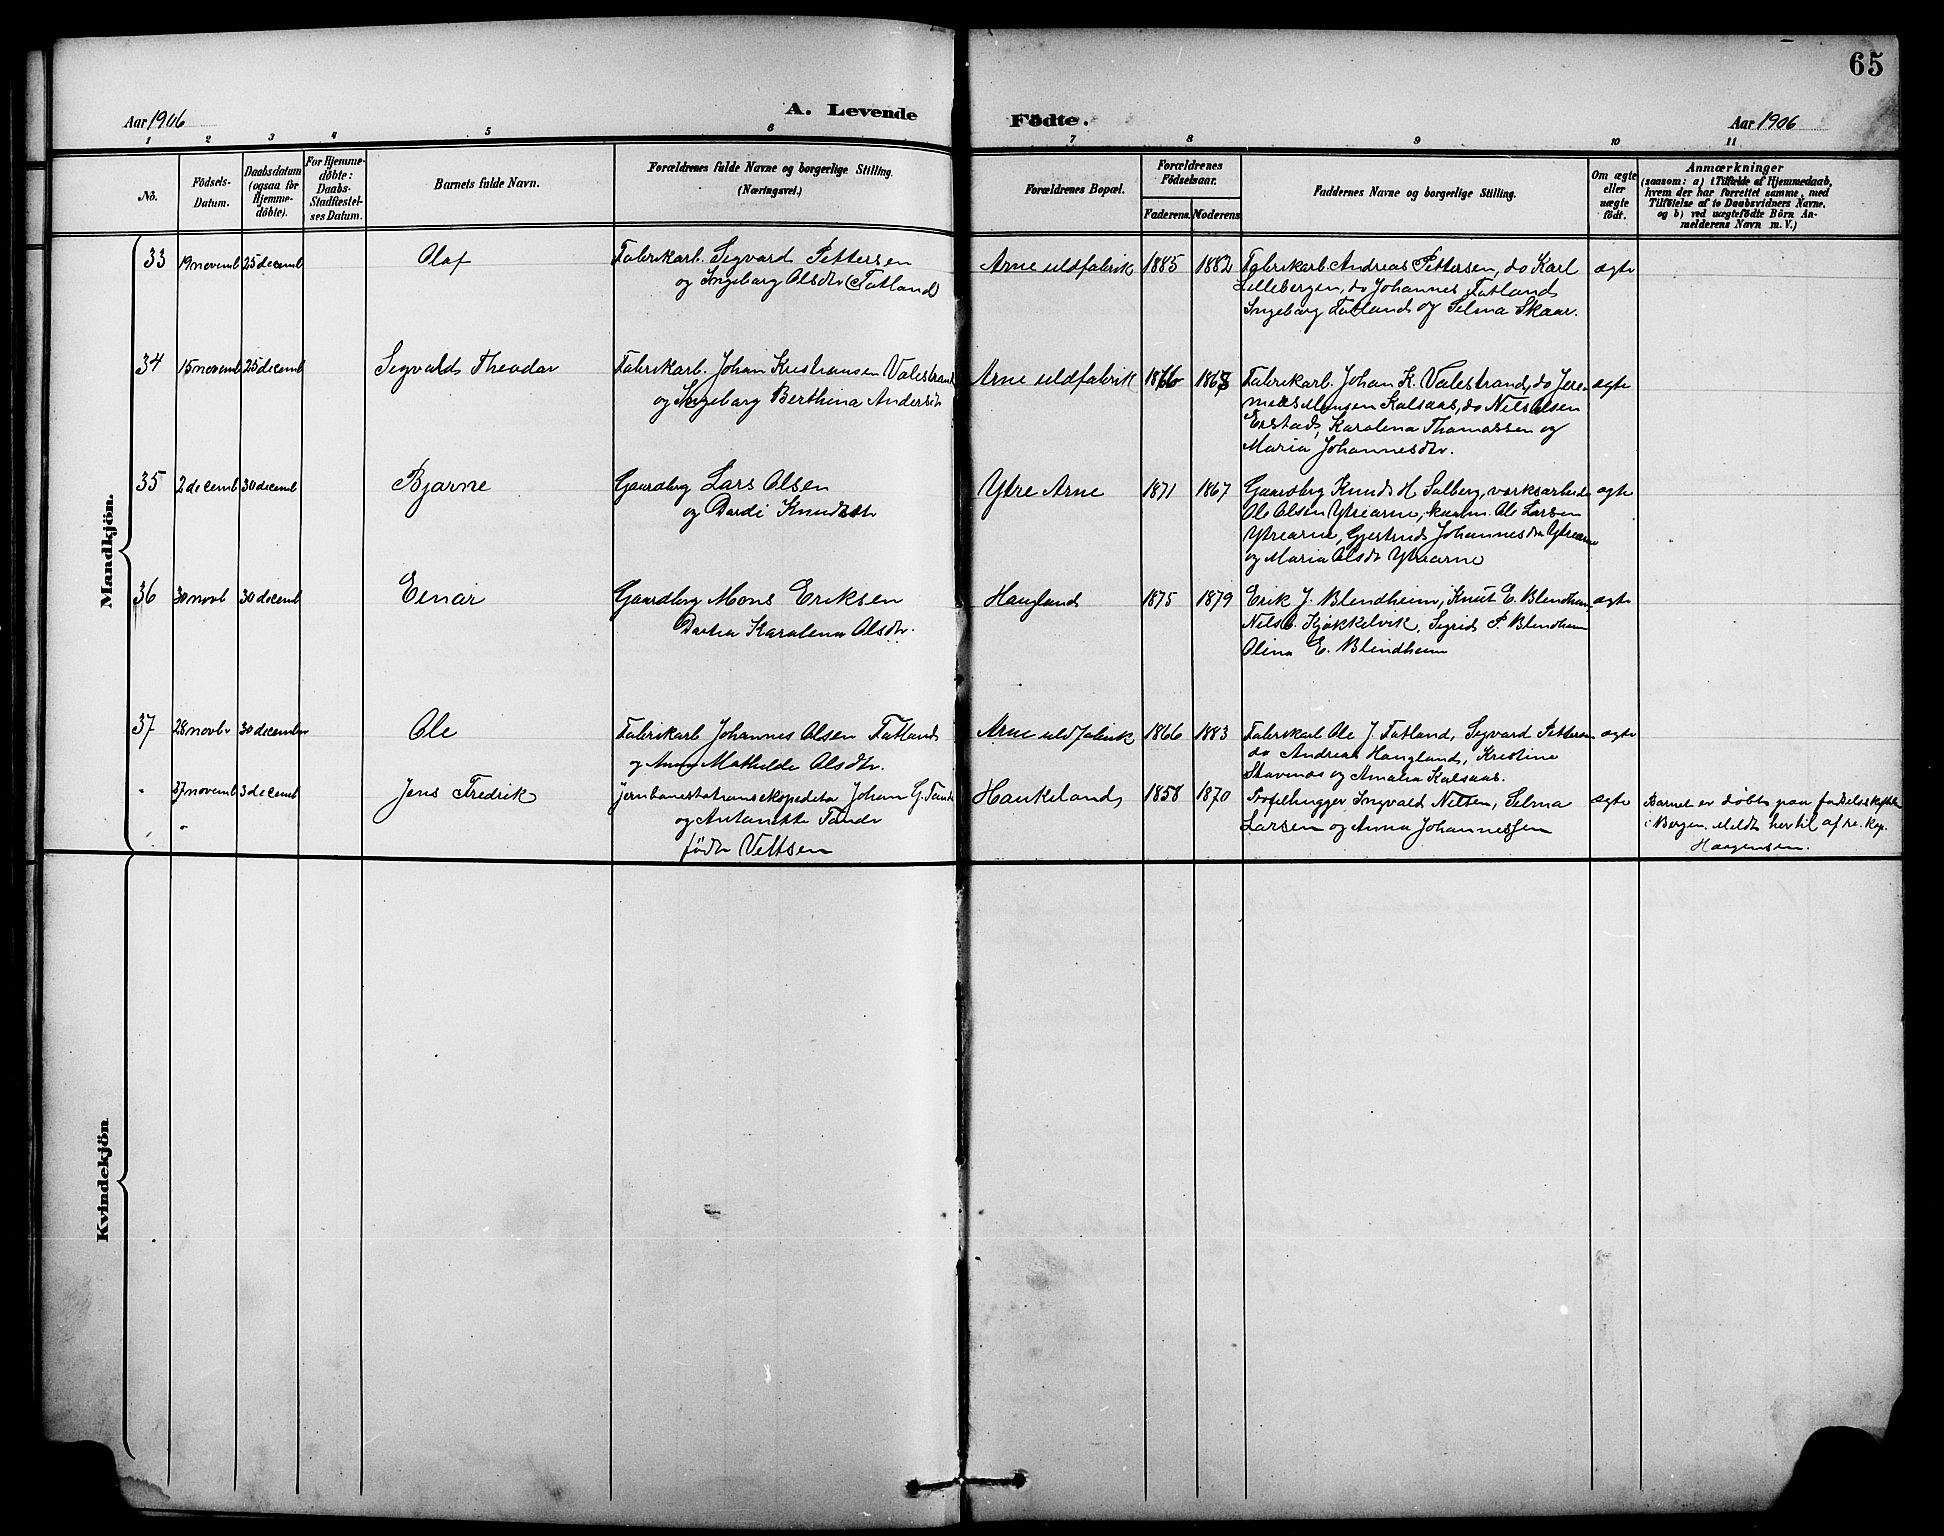 65
Aar 1906 A. Levende Födte. Aar 1906
1 2 3 4 5 6 7 8 9 10 11
No.
Födsels-
Datum.
Daabsdatum
(ogsaa for
Hjemme-
döbte).
For Hjemme-
döbte:
Daabs-
Stadfæstel-
ses Datum.
Barnets fulde Navn.
Forældrenes fulde Navne og borgerlige Stilling.
(Næringsvei.)
Forældrenes Bopæl.
Forældrenes
Födselsaar.
Faderens. Moderens.
Faddernes Navne og borgerlige Stilling.
Om ægte
eller
uægte
födt.
Anmærkninger
(saasom: a) i Tilfælde af Hjemmedaab,
hvem der har forrettet samme, med
Tilföielse af to Daabsvidners Navne.
og b) ved uægtefödte Börn An-
melderens Navn m. V.)
Mandkjön.
33 19 novemb 25 decemb Olaf
Fabrikarb. Sigvard Pettersen
og Ingeborg Olsdtr (Fatland)
Arne uldfabrik 1885 1882
Fabrikarb. Andreas Pettersen, do Karl
Lillebergen, do Johannes Fatland
Ingeborg Fatland og Selma Skaar.
ægte
34 15 novemb 25 decemb Sigvald Theodor
Fabrikarb. Johan Kristiansen Valestrand
og Ingeborg Berthina Andersdtr
Arne uldfabrik 1866
Fabrikarb. Johan K. Valestrand, do Jere-
mias Monsen Kalsaas, do Nils Olsen
Erstad, Karolina Thomassen og
Maria Johannesdtr.
ægte
35 2 decemb 30 decemb Bjarne
Gaardbrg Lars Olsen
og Dordi Knudsdtr
Ytre Arne 1871 1867
Gaardbrg Knud H Salberg, værksarbeide
Ole Olsen Ytrearne, kaarm. Ole Larsen
Ytrearne, Gjertrud Johannesdtr Ytrearne
og Maria Olsdtr Ytrearne
ægte
36 30 novb 30 decemb Einar
Gaardbrg Mons Eriksen
Dortea Karolina Olsdtr.
Haugland 1875 1879
Erik J. Blendheim, Knut E. Blendheim,
Nils Kjøkkelvik, Sigrid P. Blendheim
Olina E. Blindheim
ægte
37 28 novbr 30 decembr Ole
Fabrikarb Johannes Olsen Fatland
og Anna Mathilde Olsdtr.
Arne uldfabrik 1866 1883
Fabrikarb Ole J. Fatland, Sigvard Pettersen
do Andreas Haugland, Kristine
Stavenes og Amalia Kalsaas.
ægte
" 27 novemb 3 decemb Jens Fredrik
Jernbanestationsekspeditør Johan G. Tandr
og Antonette Tandr
födt Veltsen
Haukeland 1858 1870
Profilhugger Ingvald Nilsen, Selma
Larsen og Anna Johannessen
ægte
Barnet er døbt paa fødselsstiftelsen
i Bergen. Meldt hertil af re. Kap.
Haagensen.
Kvindekjön